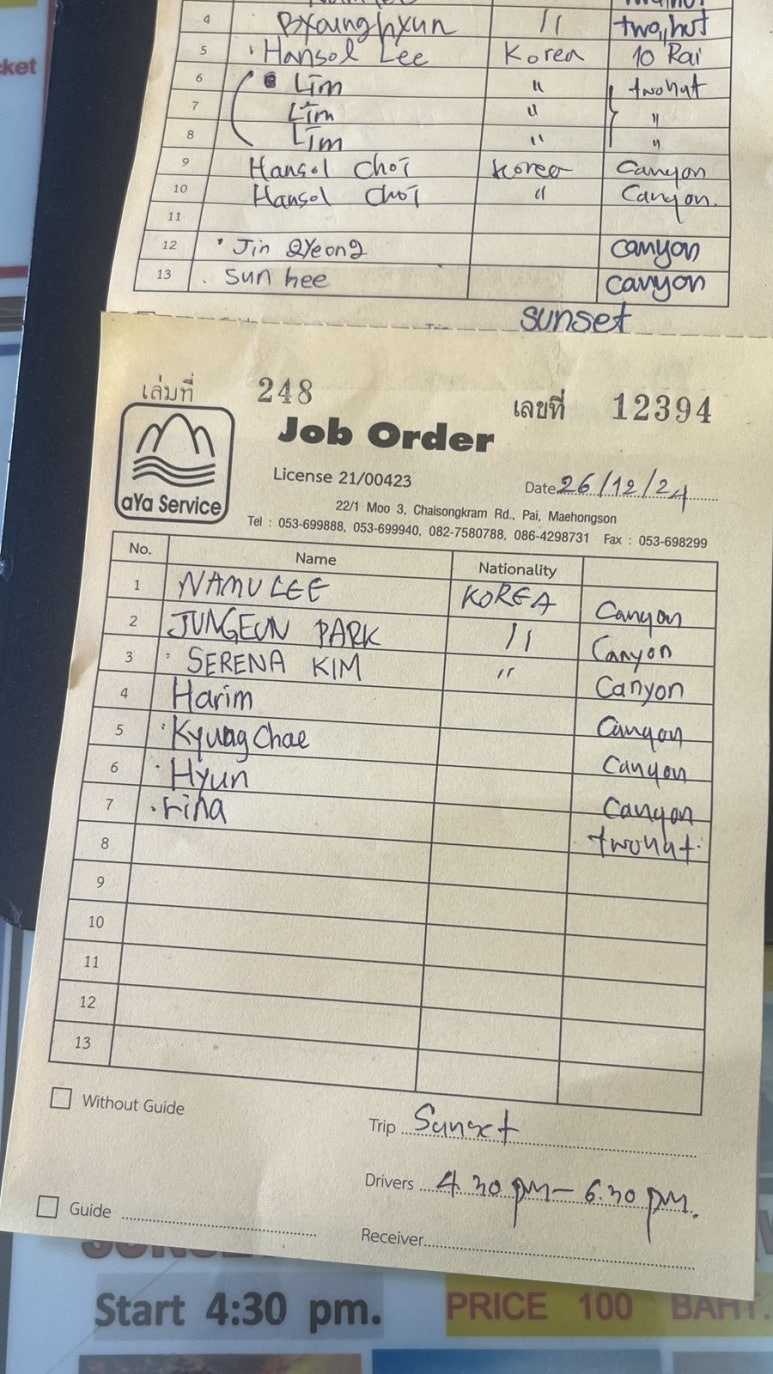 cket
4 Byounghyun 11 two hut
5 Hansol Lee Korea 10 Rai
6 Lim " twohut
7 Lim " "
8 Lim " "
9 Hansol Choi Korea Canyon
10 Hansol Choi " Canyon.
11
12 Jin gyeong canyon
13 Sun hee canyon
sunset
เล่มที่ 248 เลขที่ 12394
Job Order
aYa Service
License 21/00423 Date 26/12/24
22/1 Moo 3, Chaisongkram Rd., Pai, Maehongson
Tel : 053-699888, 053-699940, 082-7580788, 086-4298731 Fax : 053-698299
No. Name Nationality
1 NAMU LEE KOREA Canyon
2 JUNGEUN PARK 11 Canyon
3 SERENA KIM " Canyon
4 Harim Canyon
5 Kyung Chae Canyon
6 Hyun Canyon
7 rina twohut
8
9
10
11
12
13
Without Guide
Trip Sunset
Drivers 4.30 pm - 6.30 pm.
Guide
Receiver
Start 4:30 pm. PRICE 100 BAHT.